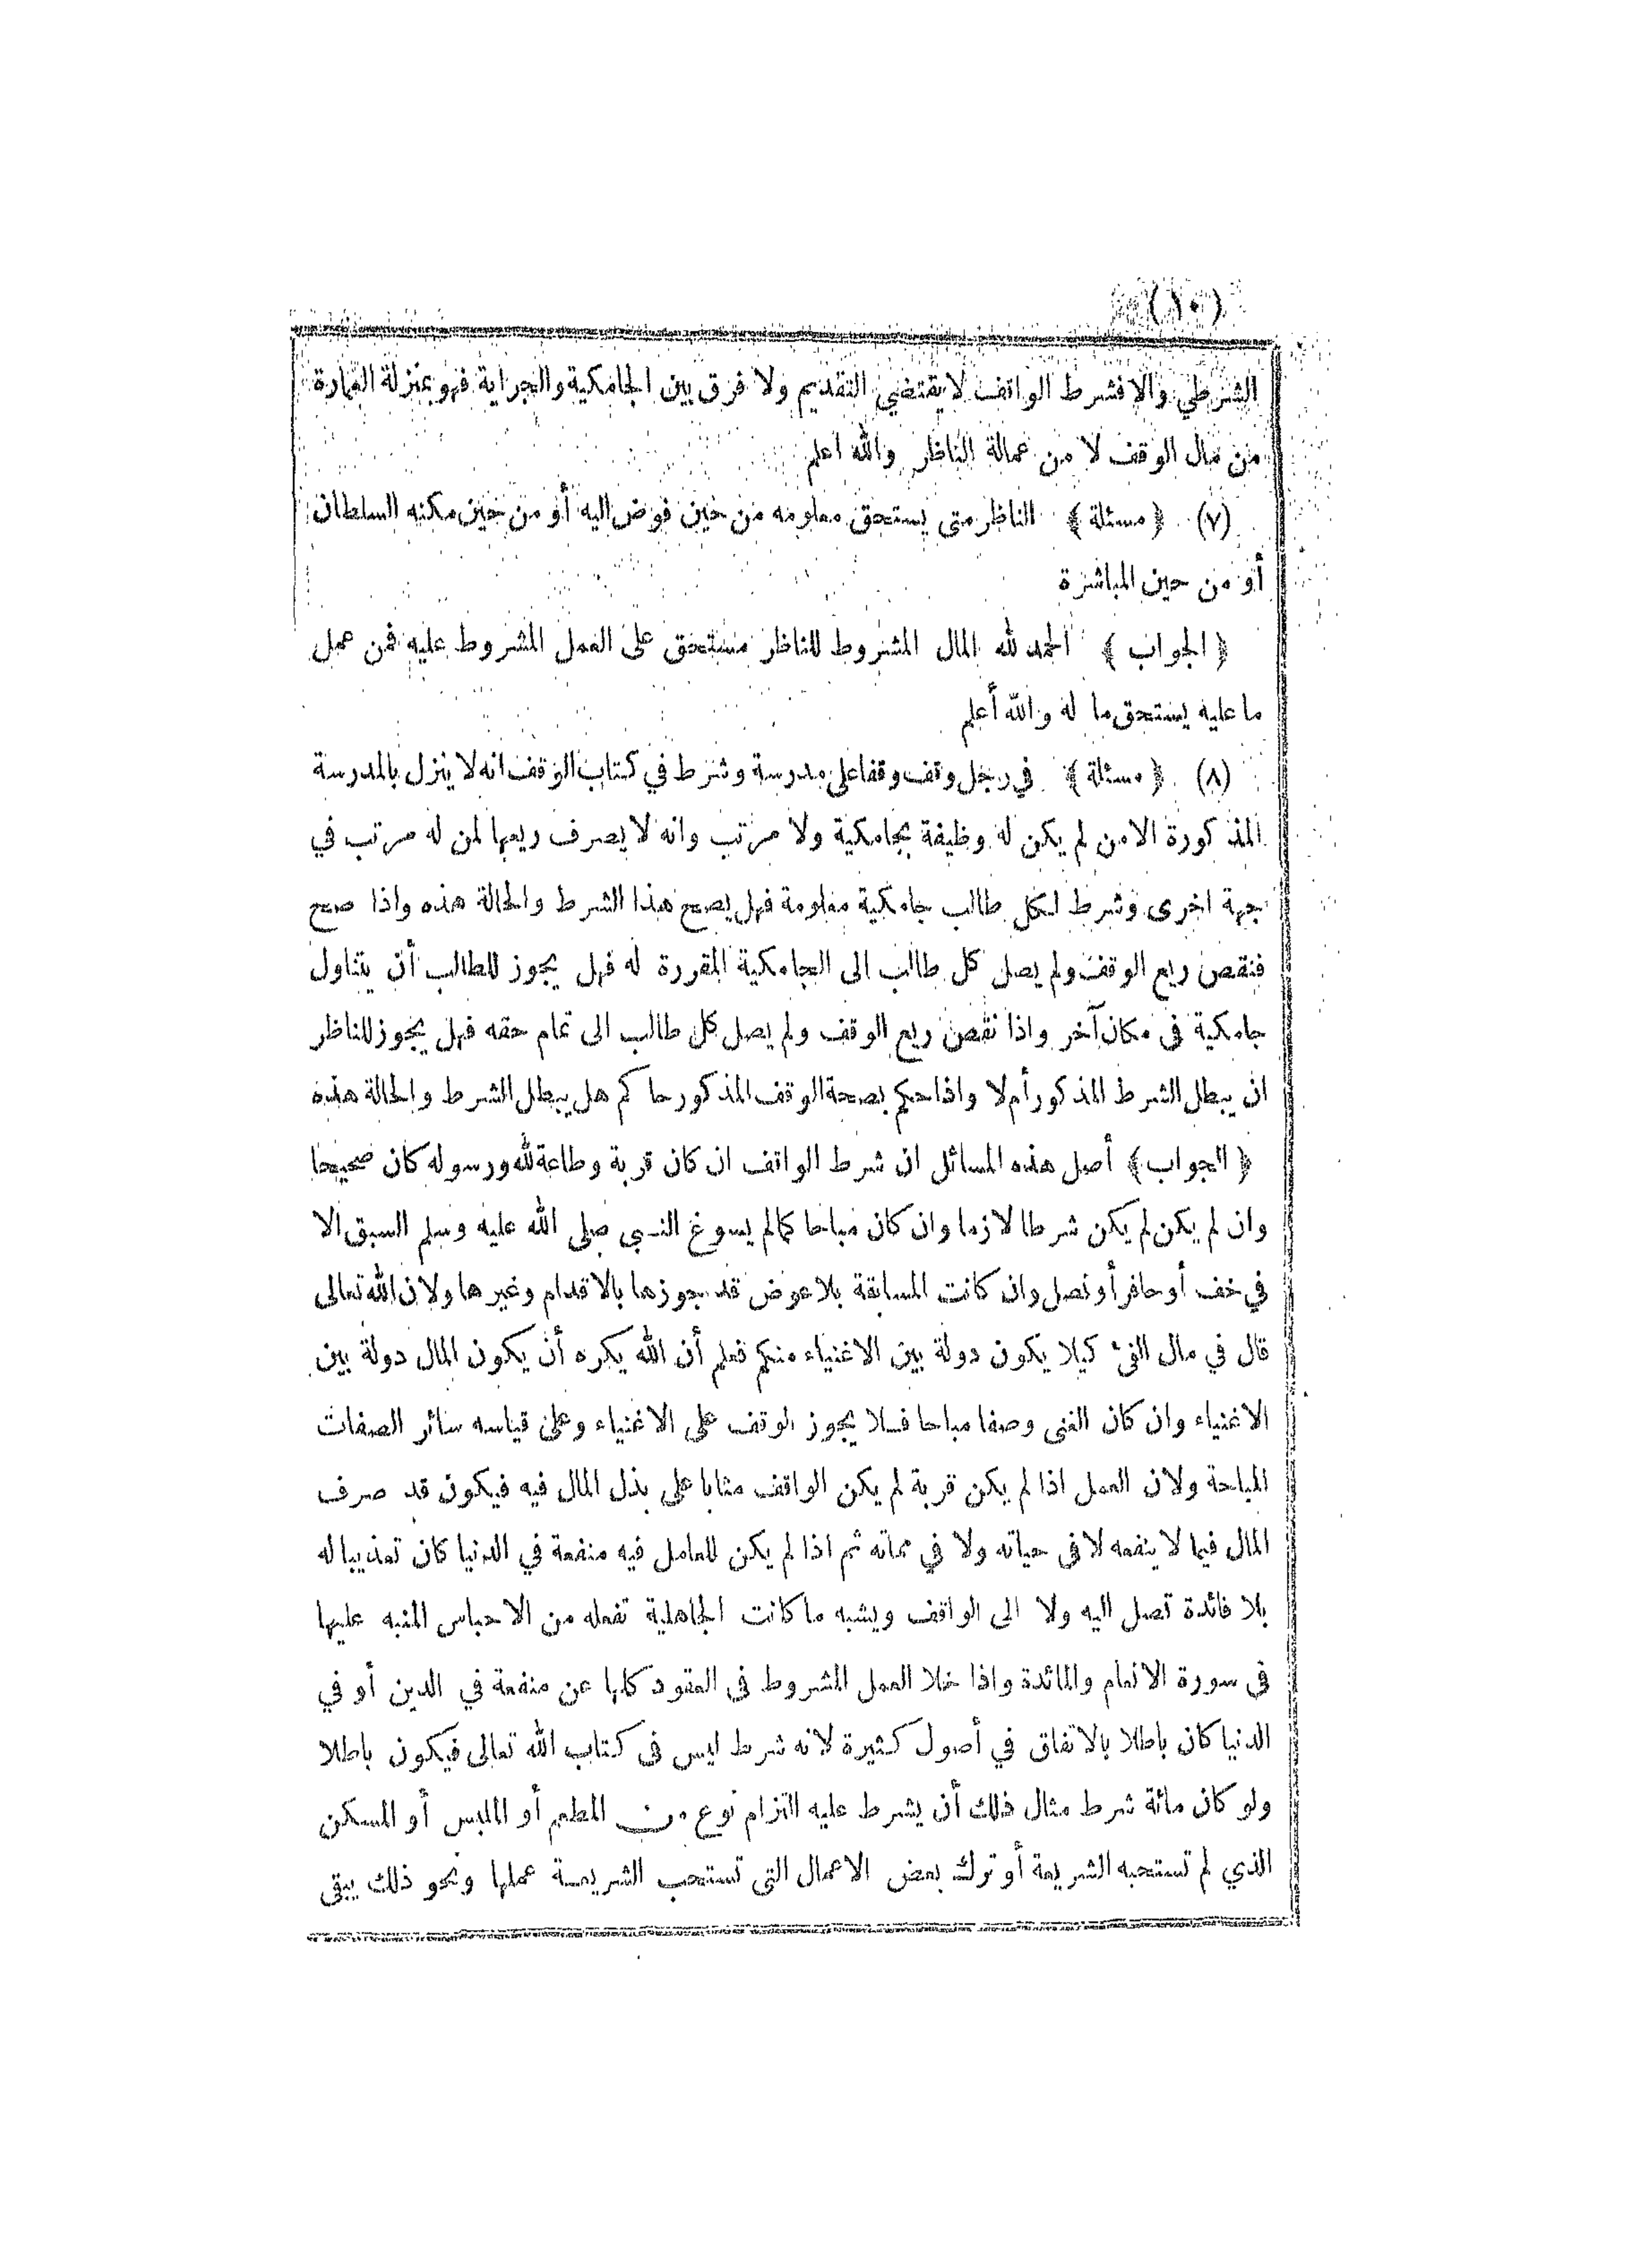 (١٠)
الشرطي والا فشرط الواقف لا يقتضي التقديم ولا فرق بين الجامكية والجراية فهو بمنزلة العمارة
من مال الوقف لا من عمالة الناظر والله اعلم
(٧) ﴿ مسئلة ﴾ الناظر متى يستحق معلومه من حين فوض اليه أو من حين مكنه السلطان
أو من حين المباشرة
﴿ الجواب ﴾ الحمد لله المال المشروط للناظر مستحق على العمل المشروط عليه فمن عمل
ما عليه يستحق ما له والله أعلم
(٨) ﴿ مسئلة ﴾ في رجل وقف وقفا على مدرسة وشرط في كتاب الوقف انه لا ينزل بالمدرسة
المذكورة الا من لم يكن له وظيفة بجامكية ولا مرتب وانه لا يصرف ريعها لمن له مرتب في
جهة اخرى وشرط لكل طالب جامكية معلومة فهل يصح هذا الشرط والحالة هذه واذا صح
فنقص ريع الوقف ولم يصل كل طالب الى الجامكية المقررة له فهل يجوز للطالب أن يتناول
جامكية فى مكان آخر واذا نقص ريع الوقف ولم يصل كل طالب الى تمام حقه فهل يجوز للناظر
ان يبطل الشرط المذكور أم لا واذا حكم بصحة الوقف المذكور حاكم هل يبطل الشرط والحالة هذه
﴿ الجواب ﴾ أصل هذه المسائل ان شرط الواقف ان كان قربة وطاعة لله ورسوله كان صحيحا
وان لم يكن لم يكن شرطا لازما وان كان مباحا كما لم يسوغ النبي صلى الله عليه وسلم السبق الا
في خف أو حافر أو نصل وان كانت المسابقة بلا عوض قد جوزها بالاقدام وغيرها ولان الله تعالى
قال في مال الفئ كيلا يكون دولة بين الاغنياء منكم فعلم أن الله يكره أن يكون المال دولة بين
الاغنياء وان كان الغنى وصفا مباحا فلا يجوز الوقف على الاغنياء وعلى قياسه سائر الصفات
المباحة ولان العمل اذا لم يكن قربة لم يكن الواقف مثابا على بذل المال فيه فيكون قد صرف
المال فيما لا ينفعه لا فى حياته ولا في مماته ثم اذا لم يكن للعامل فيه منفعة في الدنيا كان تعذيبا له
بلا فائدة تصل اليه ولا الى الواقف ويشبه ما كانت الجاهلية تفعله من الاحباس المنبه عليها
فى سورة الانعام والمائدة واذا خلا العمل المشروط فى العقود كلها عن منفعة في الدين أو في
الدنيا كان باطلا بالاتفاق في أصول كثيرة لانه شرط ليس فى كتاب الله تعالى فيكون باطلا
ولو كان مائة شرط مثال ذلك أن يشرط عليه التزام نوع من المطعم أو الملبس أو المسكن
الذي لم تستحبه الشريعة أو ترك بعض الاعمال التى تستحب الشريعة عملها ونحو ذلك يبقى